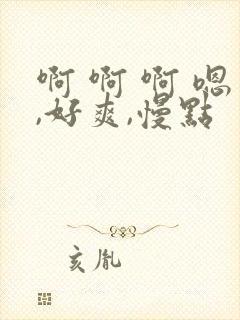 啊 啊 啊 嗯
,好爽,慢點
亥胤